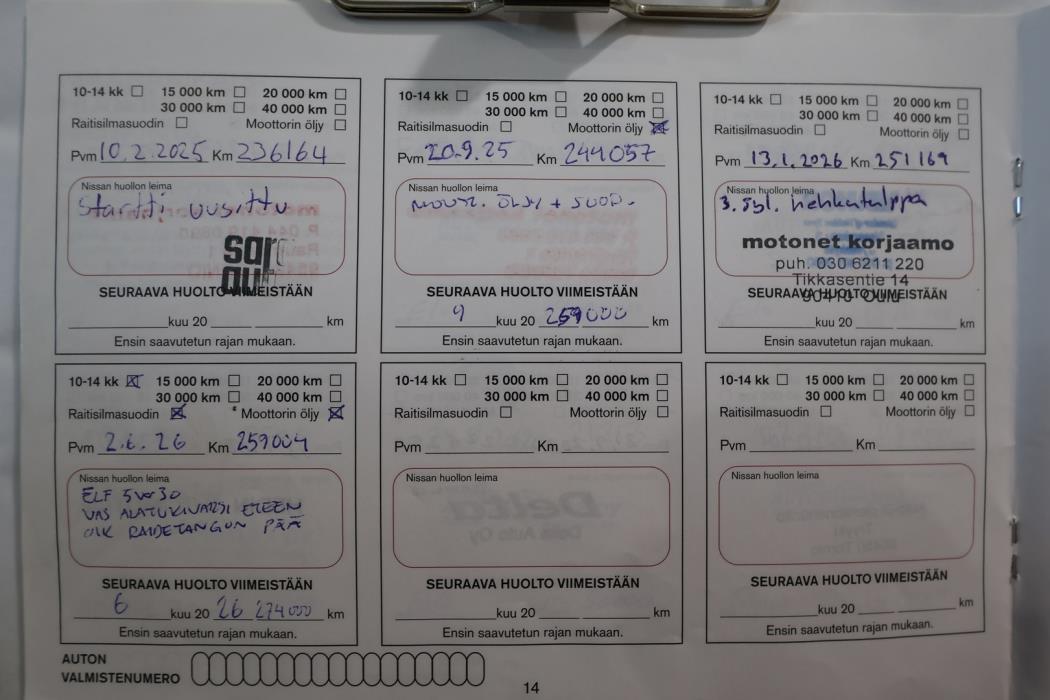 10-14 kk 15 000 km 20 000 km
30 000 km 40 000 km
Raitisilmasuodin Moottorin öljy
Pvm 10.2.2025 Km 236164
Nissan huollon leima
Startti uusittu
SEURAAVA HUOLTO VIIMEISTÄÄN
kuu 20 km
Ensin saavutetun rajan mukaan.
10-14 kk 15 000 km 20 000 km
30 000 km 40 000 km
Raitisilmasuodin Moottorin öljy
Pvm 20.9.25 Km 244057
Nissan huollon leima
moott. öljy + suod.
SEURAAVA HUOLTO VIIMEISTÄÄN
9 kuu 20 259000 km
Ensin saavutetun rajan mukaan.
10-14 kk 15 000 km 20 000 km
30 000 km 40 000 km
Raitisilmasuodin Moottorin öljy
Pvm 13.1.2026 Km 251169
Nissan huollon leima
3. syl. hehkutulppa
motonet korjaamo
puh. 030 6211 220
Tikkasentie 14
SEURAAVA HUOLTO VIIMEISTÄÄN
kuu 20 km
Ensin saavutetun rajan mukaan.
10-14 kk 15 000 km 20 000 km
30 000 km 40 000 km
Raitisilmasuodin Moottorin öljy
Pvm 2.6.26 Km 259004
Nissan huollon leima
ELF 5W30
VAS ALATUKIVARSI ETEEN
OIK RAIDETANGON PÄÄ
SEURAAVA HUOLTO VIIMEISTÄÄN
6 kuu 20 26 274000 km
Ensin saavutetun rajan mukaan.
10-14 kk 15 000 km 20 000 km
30 000 km 40 000 km
Raitisilmasuodin Moottorin öljy
Pvm Km
Nissan huollon leima
SEURAAVA HUOLTO VIIMEISTÄÄN
kuu 20 km
Ensin saavutetun rajan mukaan.
10-14 kk 15 000 km 20 000 km
30 000 km 40 000 km
Raitisilmasuodin Moottorin öljy
Pvm Km
Nissan huollon leima
SEURAAVA HUOLTO VIIMEISTÄÄN
kuu 20 km
Ensin saavutetun rajan mukaan.
AUTON
VALMISTENUMERO
14